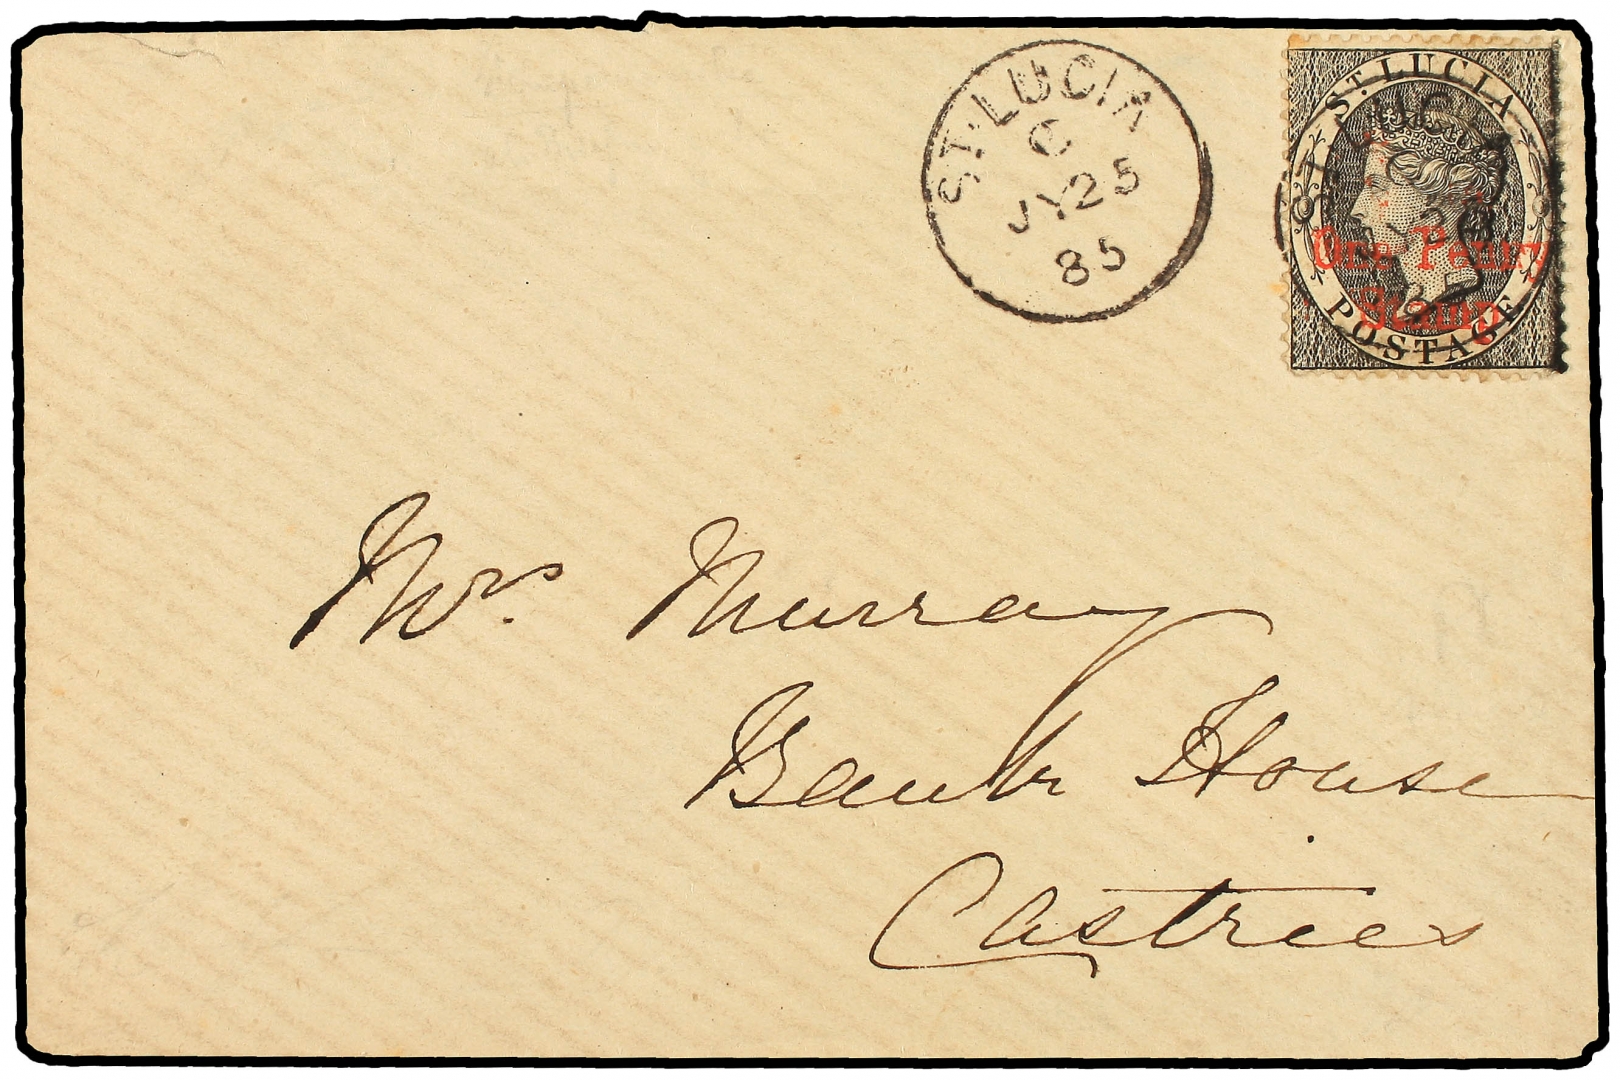 ST. LUCIA
C
JY 25
85
ST. LUCIA
One Penny
Stamp
POSTAGE
Mrs. Murray
Bank House
Castries